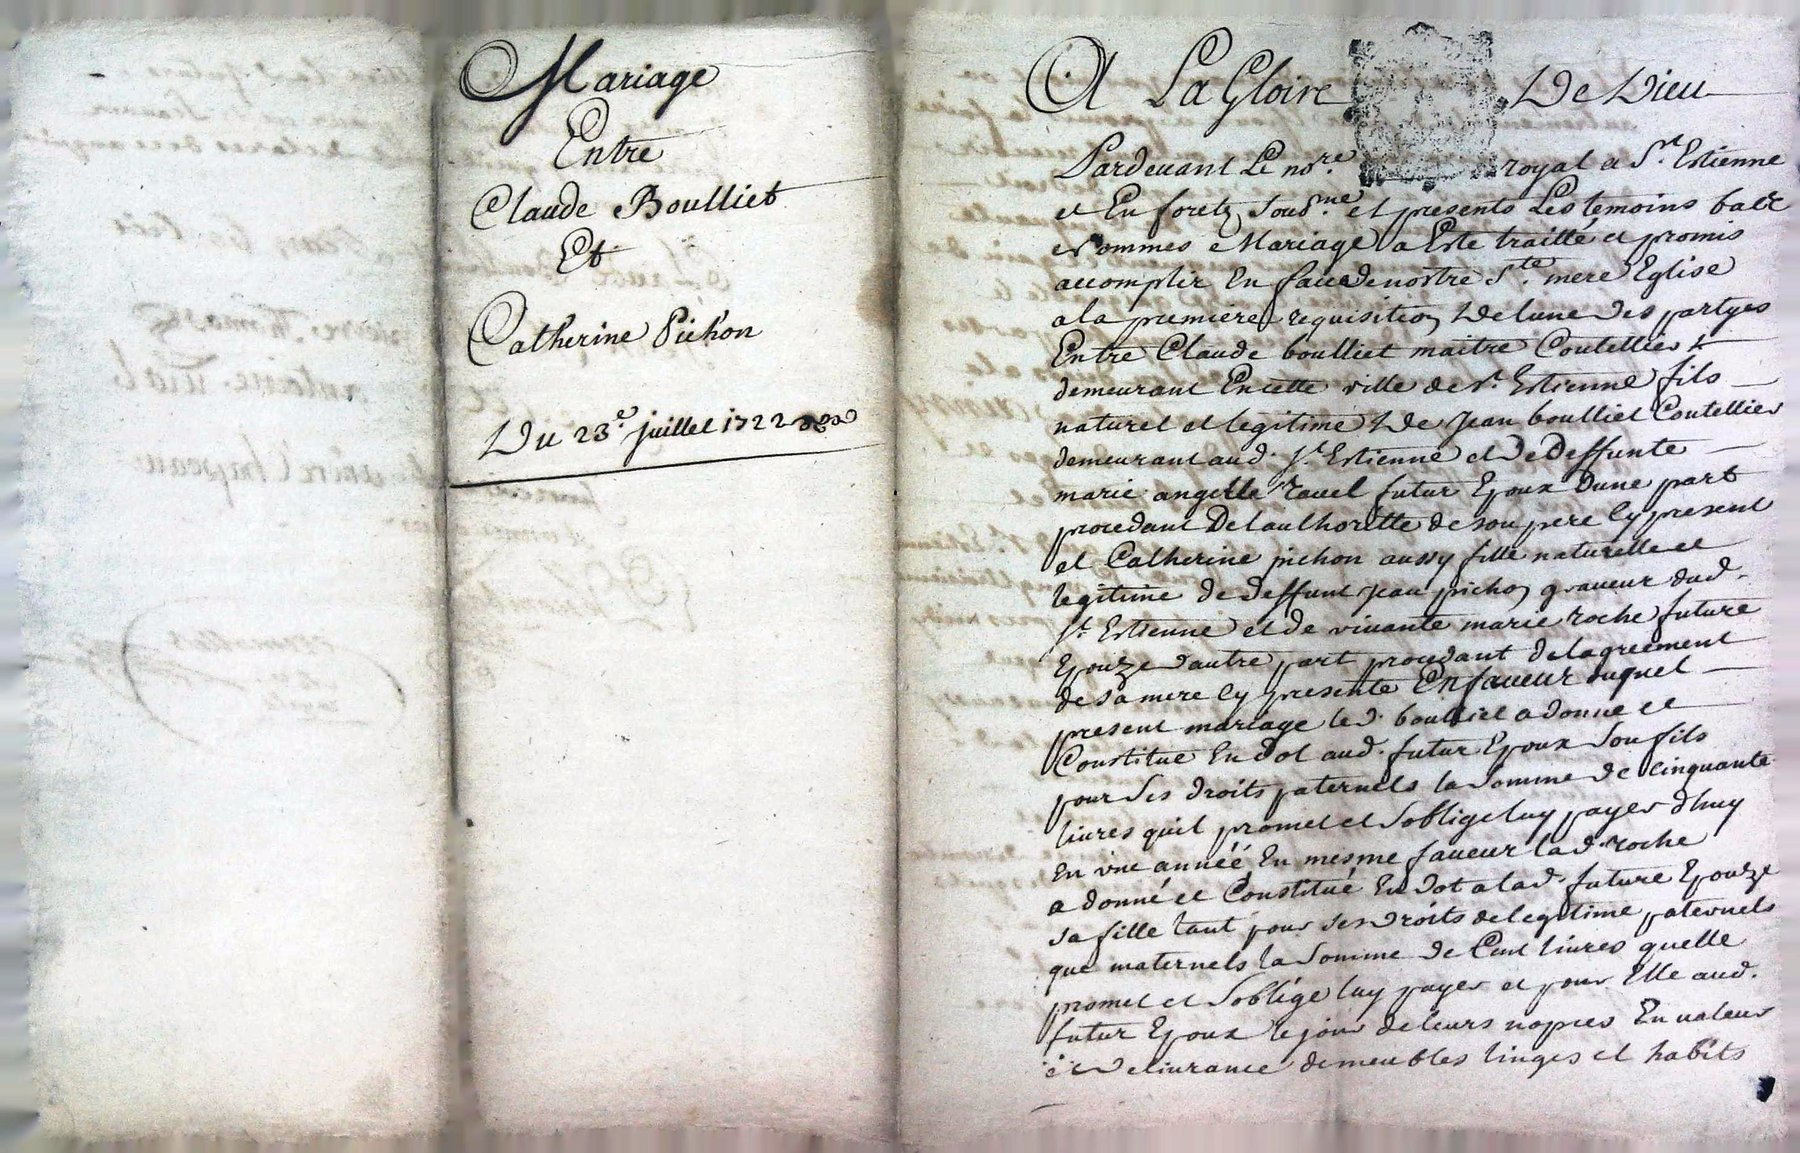 Mariage
Entre
Claude Boulliet
Et
Catherine Pichon
Du 23.e juillet 1722
A La Gloire De Dieu
Pardevant Le no.re royal a St. Estienne
et En foretz sous.né et presents Les temoins bas
nommes Mariage a Este traitté et promis
accomplir En face de nostre Ste. mere Eglise
a la premiere requisition De lune des partyes
Entre Claude boulliet maitre Coutellier
demeurant En cette ville de St. Estienne fils
naturel et legitime De Jean boulliet Coutellier
demeurant aud. St. Estienne et De Deffunte
marie angelle ravel futur Epoux Dune part
procedant De lauthoritte de son pere Cy present
et Catherine pichon aussy fille naturelle et
legitime de deffunt Jean pichon graveur dud.
St. Estienne et de vivante marie roche future
Epouze dautre part procedant de lagreement
de sa mere Cy presente En faveur duquel
present mariage led. boulliet a donne et
Constitue En Dot aud. futur Epoux Son fils
pour Ses droits paternels la Somme de Cinquante
livres quil promet et Soblige luy payer dhuy
En une annéé En mesme faveur lad. roche
a donné et Constitué En dot a lad. future Epouze
sa fille tant pour ses droits de legitime paternels
que maternels la Somme de Cent livres quelle
promet et Soblige luy payer et pour Elle aud.
futur Epoux le jour de leurs nopces En valeur
et delivrance de meubles linges et habits